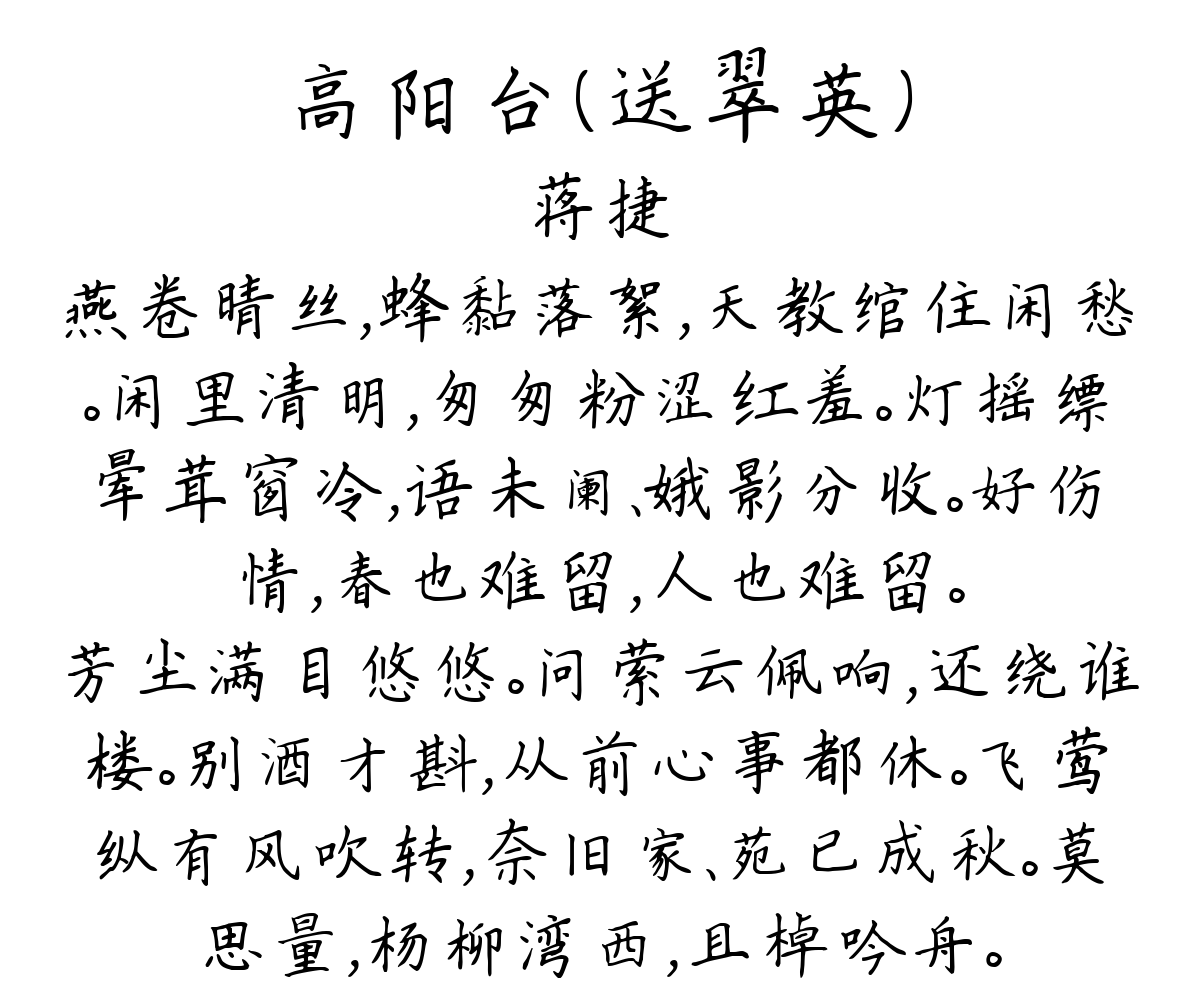 高阳台(送翠英)
蒋捷
燕卷晴丝,蜂黏落絮,天教绾住闲愁
。闲里清明,匆匆粉涩红羞。灯摇缥
晕茸窗冷,语未阑、娥影分收。好伤
情,春也难留,人也难留。
芳尘满目悠悠。问萦云佩响,还绕谁
楼。别酒才斟,从前心事都休。飞莺
纵有风吹转,奈旧家、苑已成秋。莫
思量,杨柳湾西,且棹吟舟。